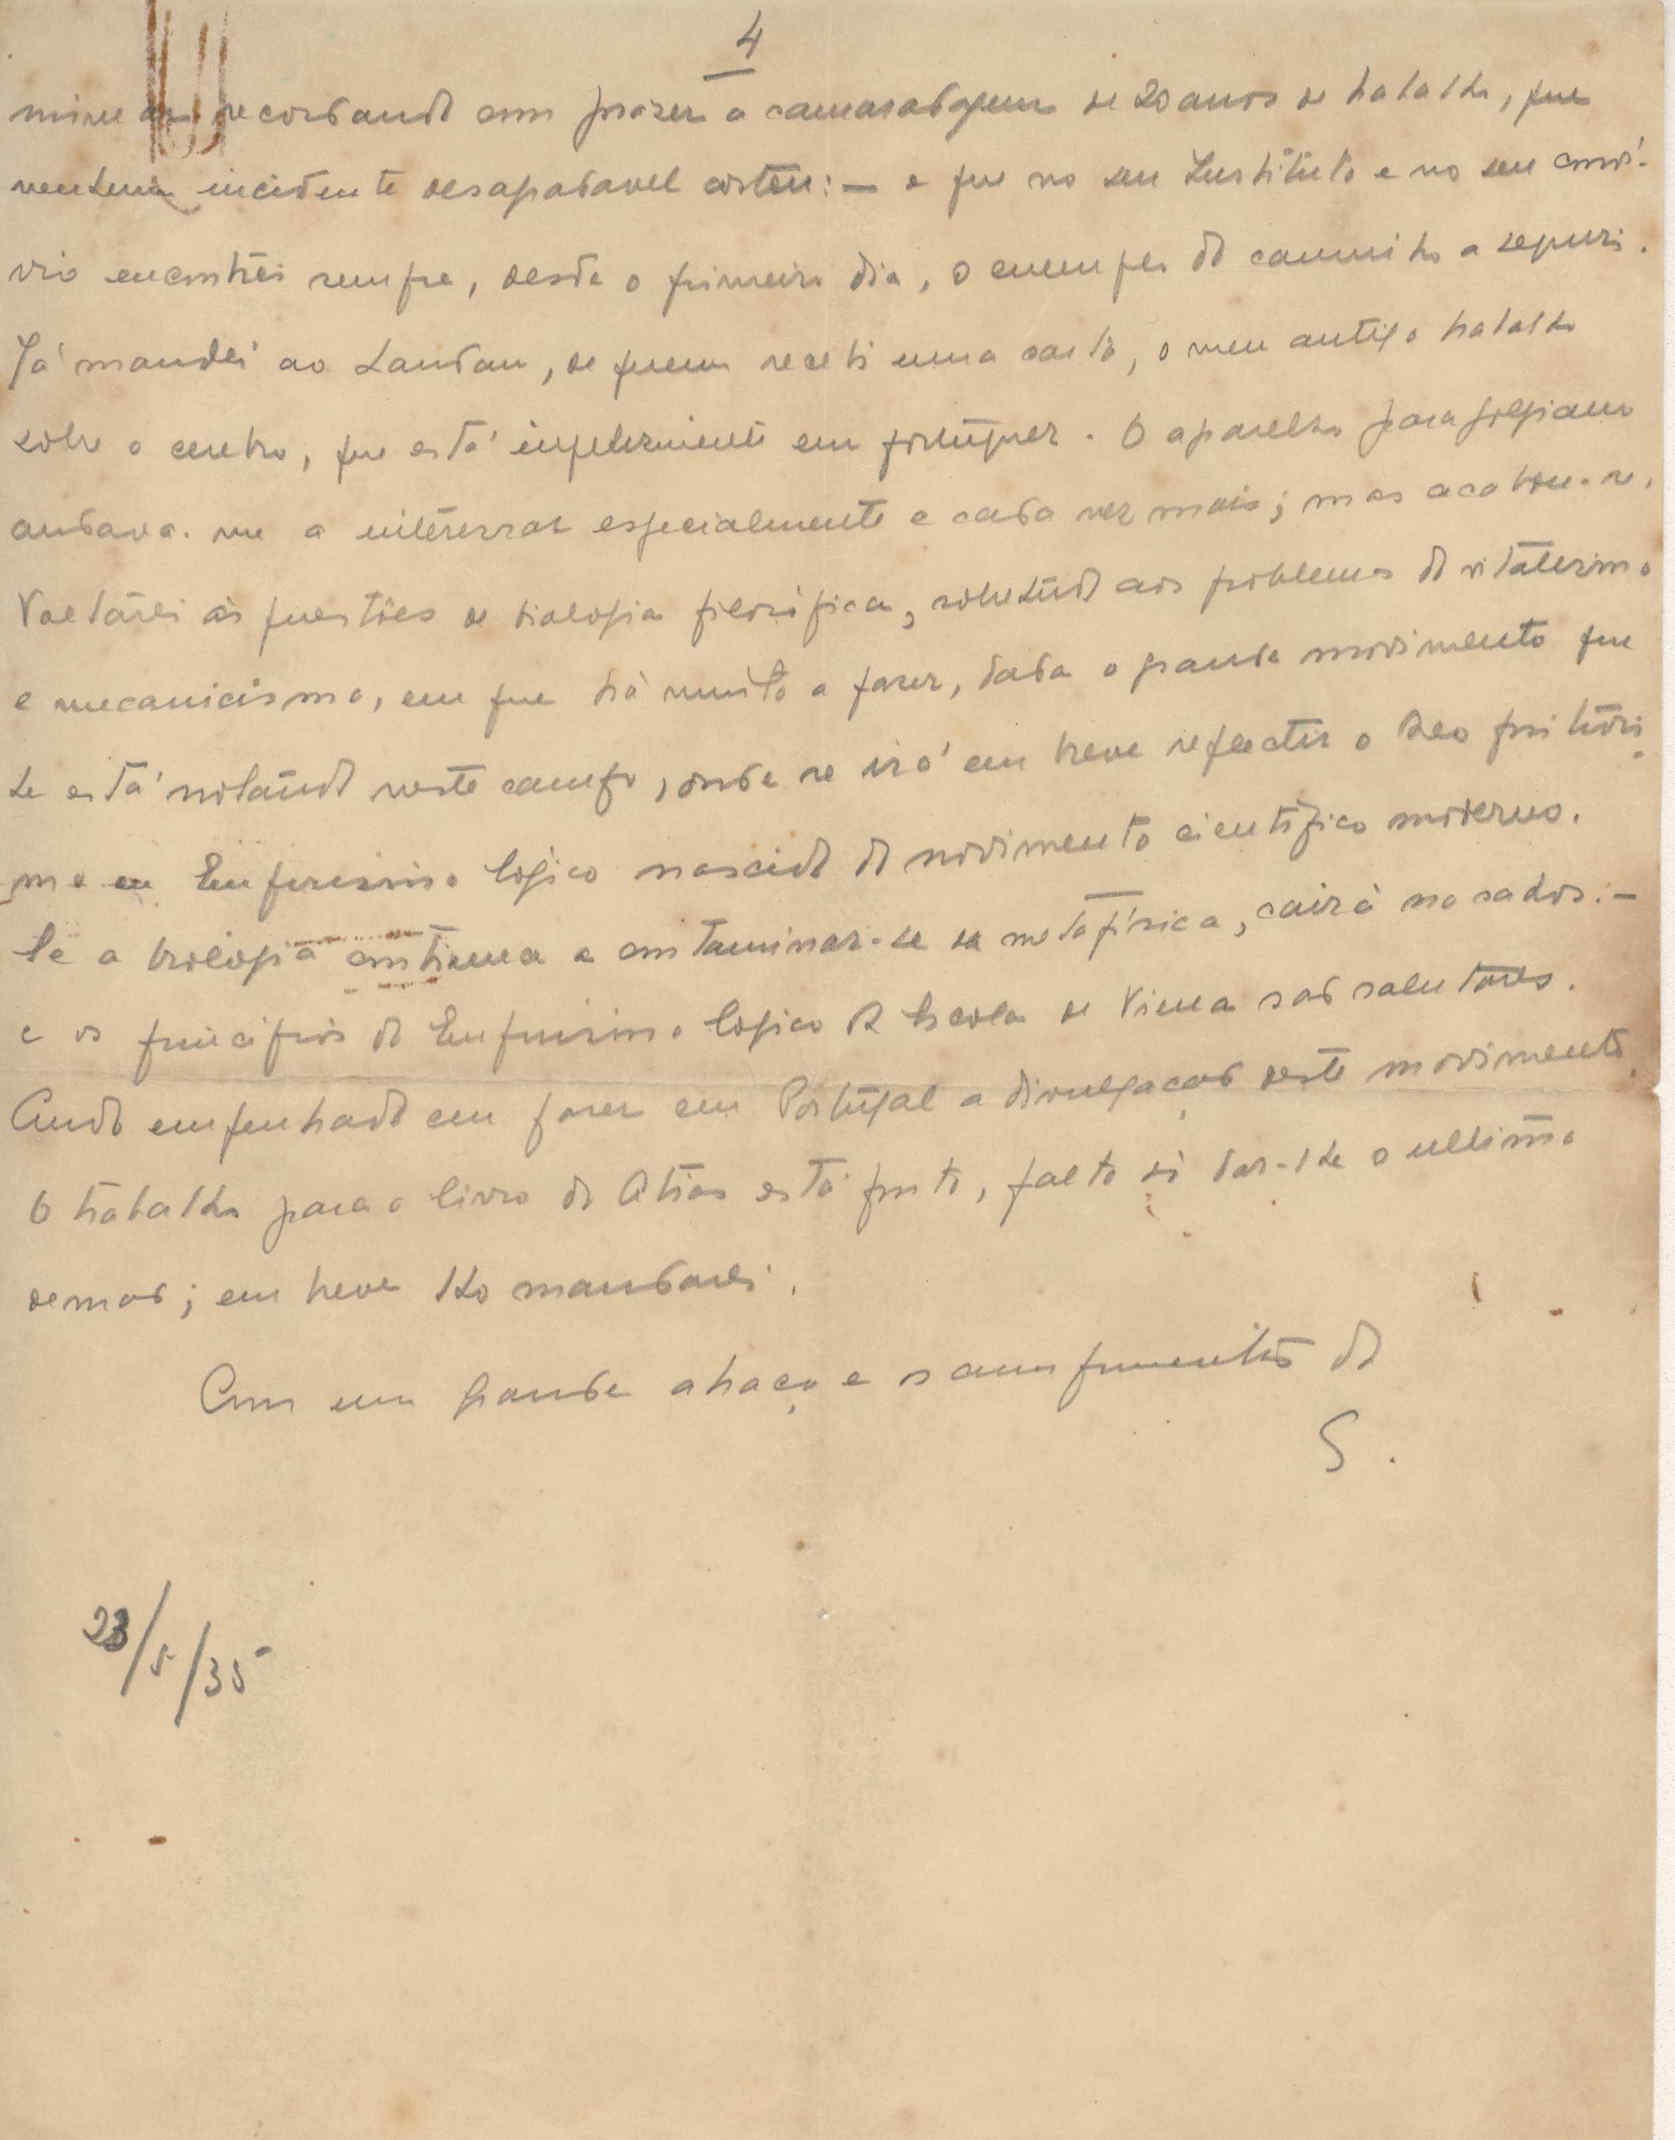 4
recordando com prazer a camaradagem de 20 anos de trabalho, que
nenhum incidente desagradavel cortou: — e que no seu Instituto e no seu conví-
vio encontrei sempre, desde o primeiro dia, o exemplo do caminho a seguir.
Já mandei ao Landau, de quem recebi uma carta, o meu antigo trabalho
sobre o centro, que está infelizmente em português. O aparelho paragolgiano
andava-me a interessar especialmente e cada vez mais; mas acabou-se.
Voltarei ás questões de biologia filosófica, sobretudo aos problemas do vitalismo
e mecanicismo, em que há muito a fazer, dada o grande movimento que
se está notando neste campo, onde se irá em breve reflectir o Neo positivis-
mo ou Empirismo logico nascido do movimento cientifico moderno.
Se a biologia continua a contaminar-se da metafísica, cairá no caos. —
e os principios do Empirismo logico da Escola de Viena são salutares.
Ando empenhado em fazer em Portugal a divulgação deste movimento.
O trabalho para o livro do Athias está pronto, falta só dar-lhe o ultima
demão; em breve lho mandarei.
Com um grande abraço e os cumprimentos do
S.
23/5/35